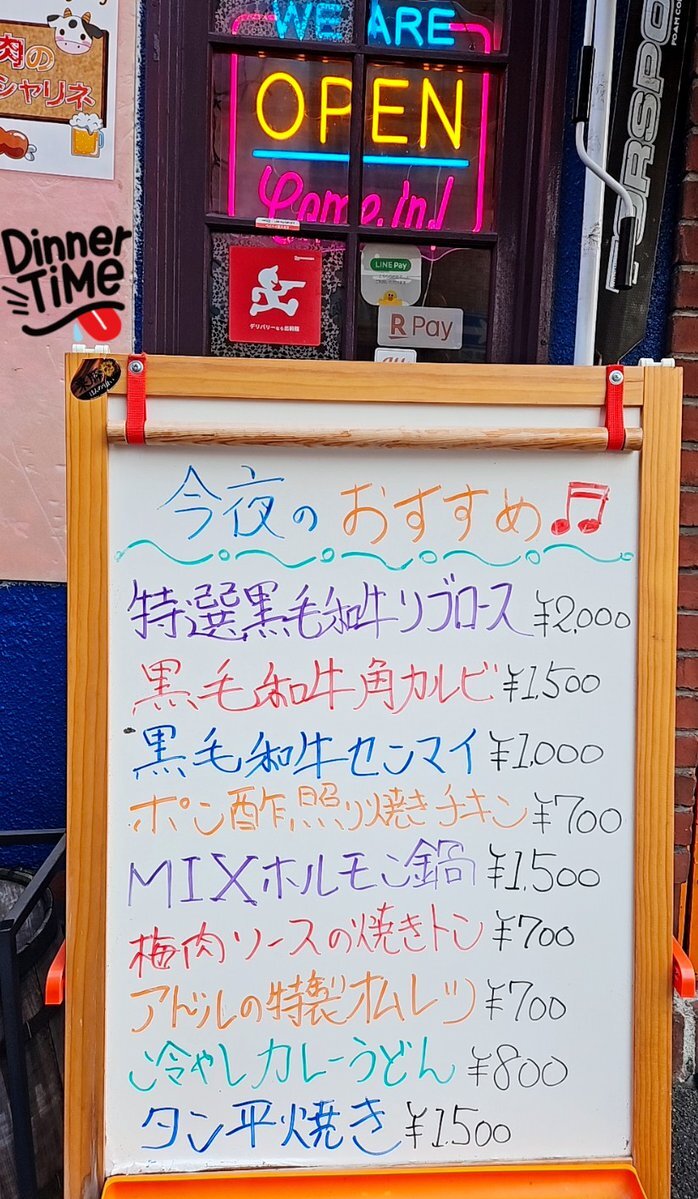 肉の
シャリネ
WE ARE
OPEN
Come in!
Dinner
TIME
デリバリーなら出前館
LINE Pay
R Pay
今夜の おすすめ♫
特選黒毛和牛リブロース ¥2,000
黒毛和牛角カルビ ¥1,500
黒毛和牛センマイ ¥1,000
ポン酢照り焼きチキン ¥700
MIXホルモン鍋 ¥1,500
梅肉ソースの焼きトン ¥700
アドルの特製オムレツ ¥700
冷やしカレーうどん ¥800
タン平焼き ¥1500